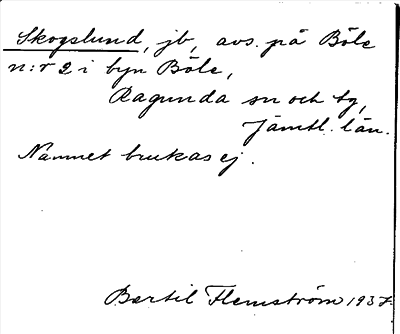 Skogslund, jb, avs. på Böle
n:r 2 i byn Böle,
Ragunda sn och tg,
Jämtl. län.
Namnet brukas ej.
Bertil Flemström 1937